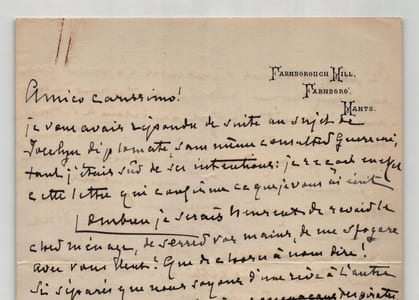 Farnborough Hill,
Farnboro',
Hants.
Amico carissimo!
je vous avais répondu de suite au sujet de
Jocelyn diplomate, sans même consulter Guerrini,
tant j'étais sûr de ses intentions: je reçois
cette lettre qui confirme ce que je vous ai écrit
Combien je serais heureux de revoir le
cher ménage, de serrer vos mains, de me sfogare
avec vous deux! Que de choses à nous dire!
Si séparés que nous soyons d'une rive à l'autre